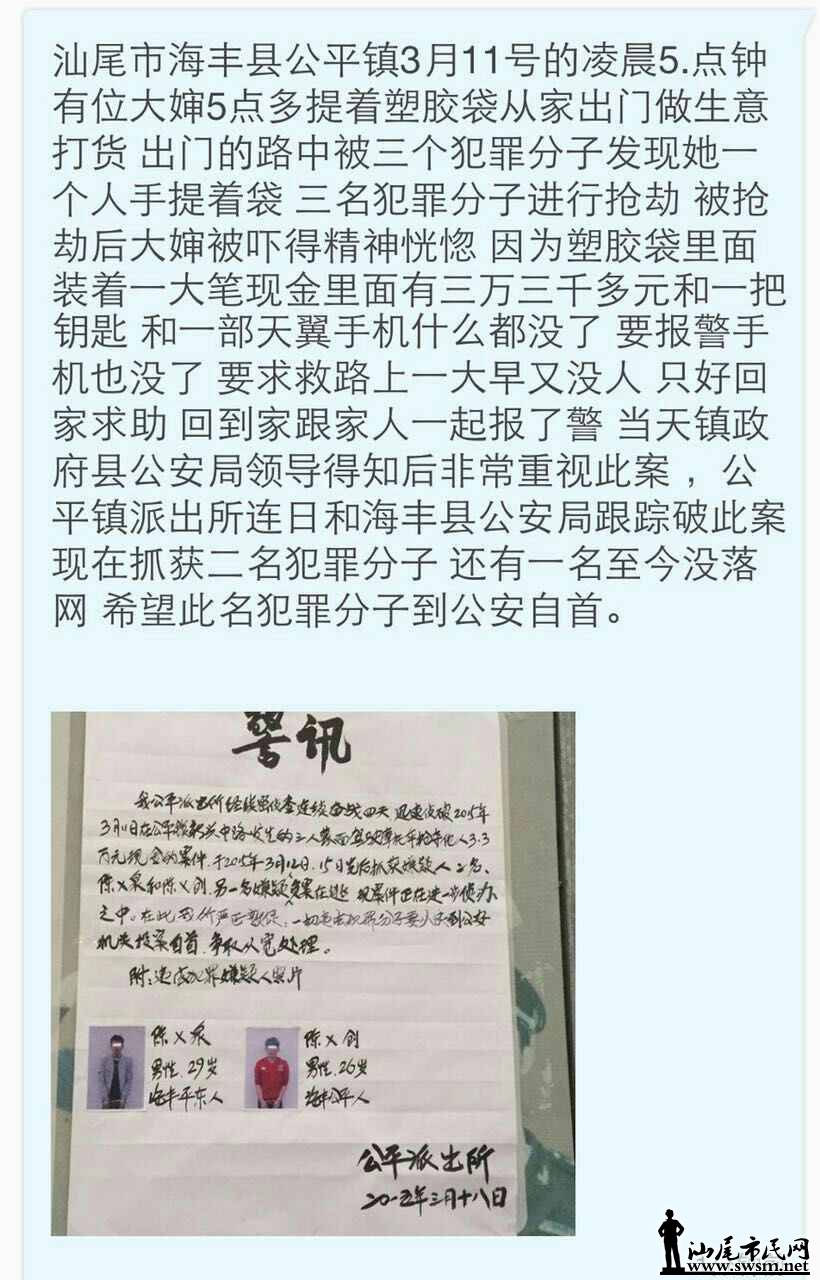 汕尾市海丰县公平镇3月11号的凌晨5.点钟
有位大婶5点多提着塑胶袋从家出门做生意
打货 出门的路中被三个犯罪分子发现她一
个人手提着袋 三名犯罪分子进行抢劫 被抢
劫后大婶被吓得精神恍惚 因为塑胶袋里面
装着一大笔现金里面有三万三千多元和一把
钥匙 和一部天翼手机什么都没了 要报警手
机也没了 要求救路上一大早又没人 只好回
家求助 回到家跟家人一起报了警 当天镇政
府县公安局领导得知后非常重视此案 ，公
平镇派出所连日和海丰县公安局跟踪破此案
现在抓获二名犯罪分子 还有一名至今没落
网 希望此名犯罪分子到公安自首。
警讯
我公平派出所经缜密侦查连续奋战四天 迅速侦破2015年
3月11日在公平镇 中路发生的三人蒙面驾驶摩托车抢夺他人3.3
万元现金的案件.于2015年3月12日、15日先后抓获嫌疑人2名、
陈X泉和陈X创.另一名嫌疑 在逃 现案件正在进一步侦办
之中.在此我所严正敦促,一切违法犯罪分子要 到公安
机关投案自首.争取从宽处理。
附:违法犯罪嫌疑人照片
陈X泉
男性.29岁
海丰平东人
陈X创
男性.26岁
海丰公平人
公平派出所
二0一五年三月十八日
汕尾市民网
www.swsm.net